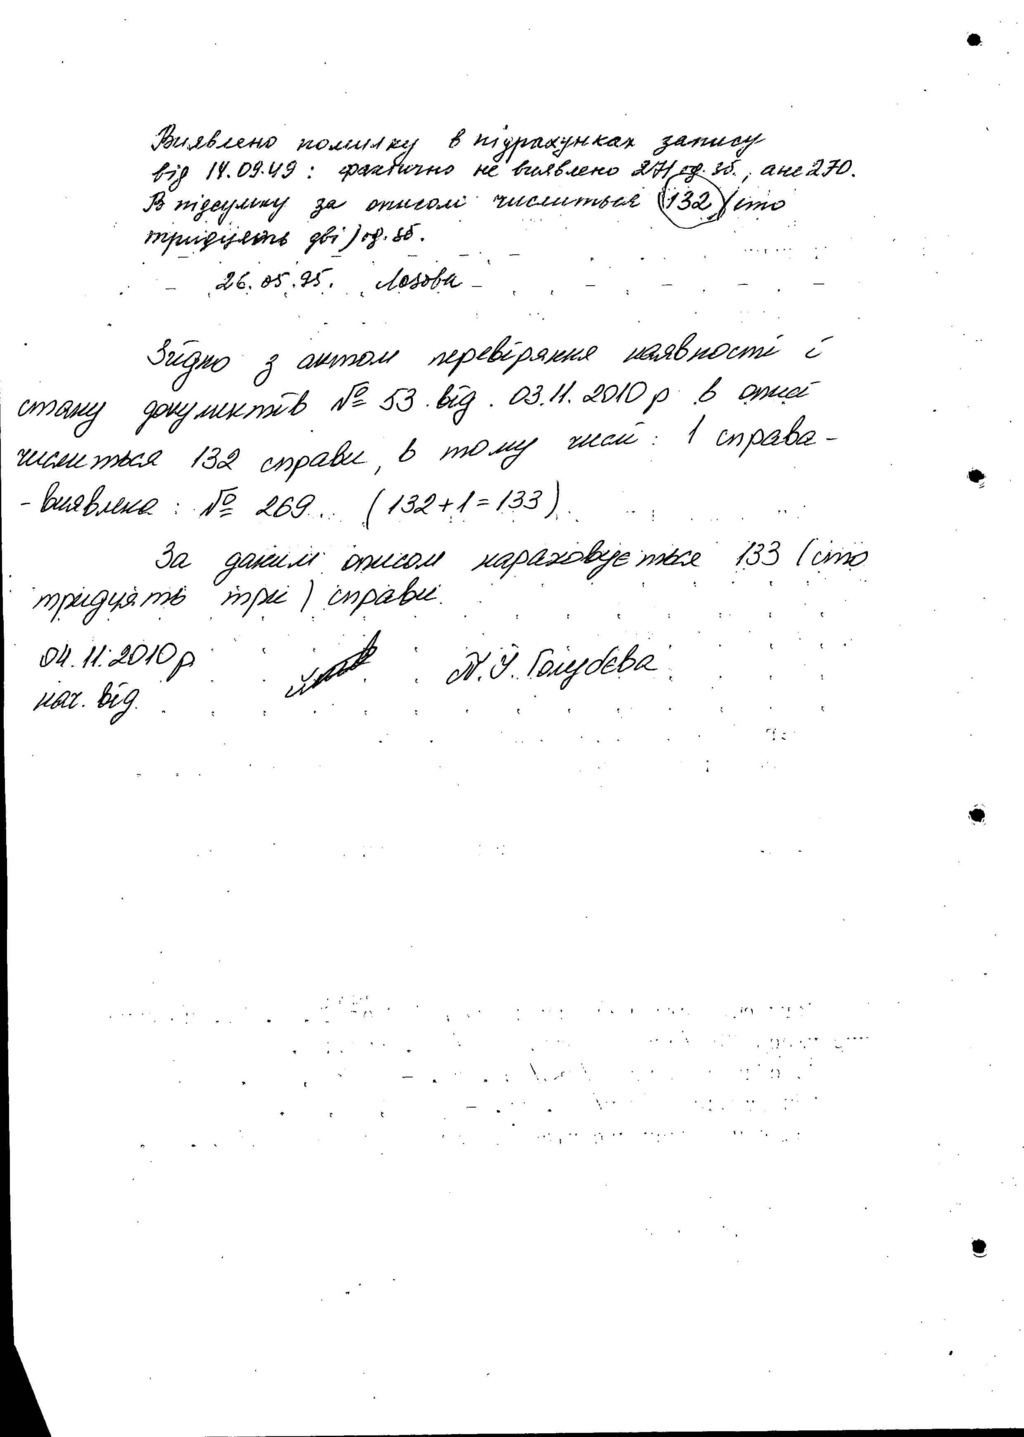 Виявлено помилку в підрахунках запису
від 14.09.49: фактично не виявлено 271 од. зб., а не 270.
В підсумку за описом числиться (132) (сто
тридцять дві) од. зб.
26.05.95. Лозова
Згідно з актом перевіряння наявності і
стану документів № 53 від 03.11.2010 р в описі
числиться 132 справи, в тому числі: 1 справа-
- виявлена: № 269. (132+1=133)
За даним описом нараховується 133 (сто
тридцять три) справи.
04.11.2010 р
нач. від. Голубєва